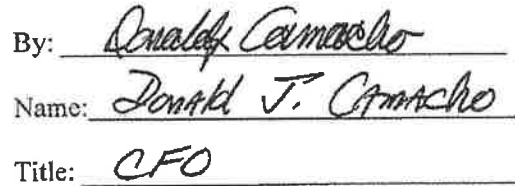 By: Donald J Camacho
Name: Donald J. Camacho
Title: CFO